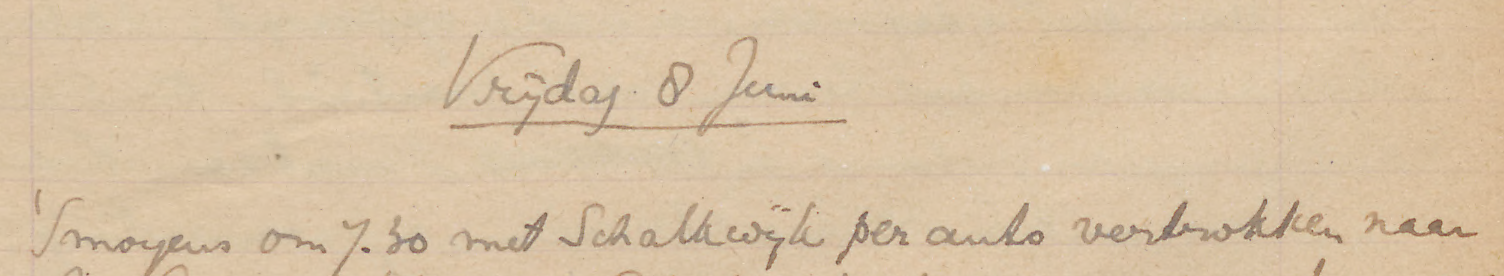 Vrijdag 8 Juni
'Smorgens om 7.30 met Schalkwijk per auto vertrokken naar